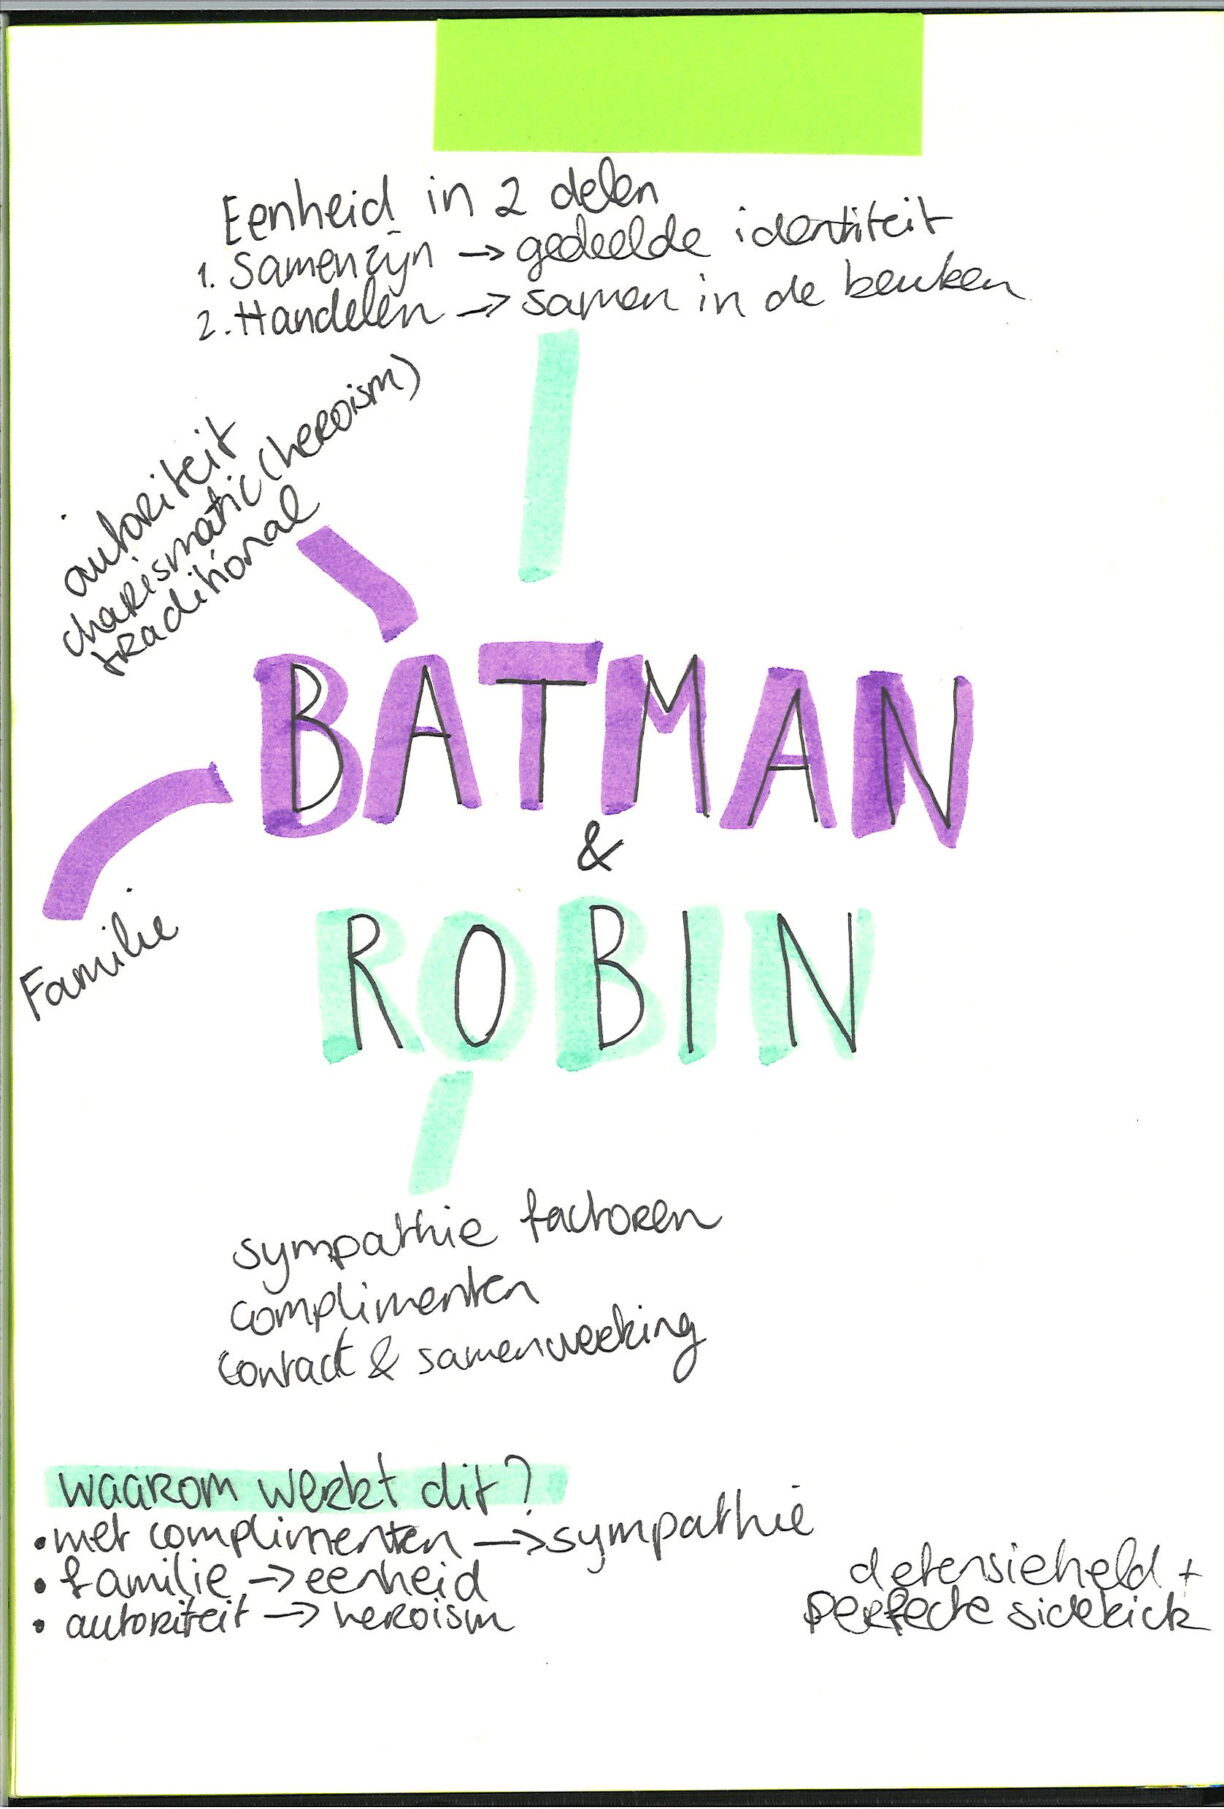 Eenheid in 2 delen
1. Samenzijn → gedeelde identiteit
2. Handelen → samen in de beuken
autoriteit
charismatic (heroism)
traditional
BATMAN
&
ROBIN
Familie
sympathie factoren
complimenten
contact & samenwerking
waarom werkt dit?
• met complimenten → sympathie
• familie → eenheid
• autoriteit → heroism
defensieheld +
perfecte sidekick